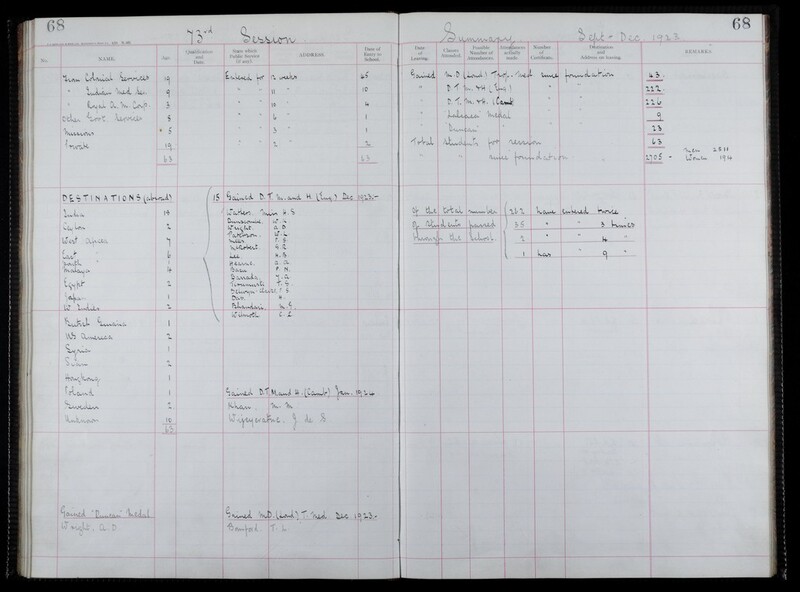 68
73rd Session
No.
NAME.
Age.
Qualification and Date.
ADDRESS.
Date of Entry to School.
From Colonial Services 19
" Indian Med. Ser. 9
" Royal A. M. Corp. 3
Other Govt. Services 8
Missions 5
Private 19
63
Entered for 12 weeks 45
" " 11 " 10
" " 10 " 4
" " 6 " 1
" " 3 " 1
" " 2 " 2
63
DESTINATIONS (abroad)
India 19
Ceylon 2
West Africa 7
East " 6
South "
Malaya 4
Egypt 2
Japan 1
W Indies 2
British Guiana 1
US America 2
Syria 1
Sudan 2
Hong Kong 1
Poland 1
Sweden 2
Unknown 10
63
15 Gained D.T.M. and H. (Eng.) Dec 1923.-
Watkers. Miss H. S
Dunscombe. W. C
Wright. A. D.
Paterson. W. L
Lee. H. S.
Hearne.
Basu. P. N.
Barrada. Y. A.
Das.
Bhandari. M. G.
Wilmoth. C. L
Gained D.T.M. and H. (Camb) Jan. 1924
Khan. M. M
Wijeyeratne. J. de S
Gained "Duncan" Medal
Wright. A. D.
Gained M.D. (Lond) T. Med. Dec. 1923.-
Bomford. T. L.
68
Summary Sept - Dec. 1923
Date of Leaving.
Classes Attended.
Possible Number of Attendances.
Attendances actually made.
Number of Certificate.
Destination and Address on leaving.
REMARKS.
Gained M.D. (Lond) Trop. Med since foundation 43
" D.T.M. & H. (Eng) " " 222
" D.T.M. & H. (Camb " " 226
" Lalcaca Medal " 9
" Duncan " " 23
Total students for session 63
" " since foundation 2705 -
Men 2511
Women 194
Of the total number of students passed through the School.
262 have entered twice
35 " " 3 times
2 " " 4 "
1 has " 9 "